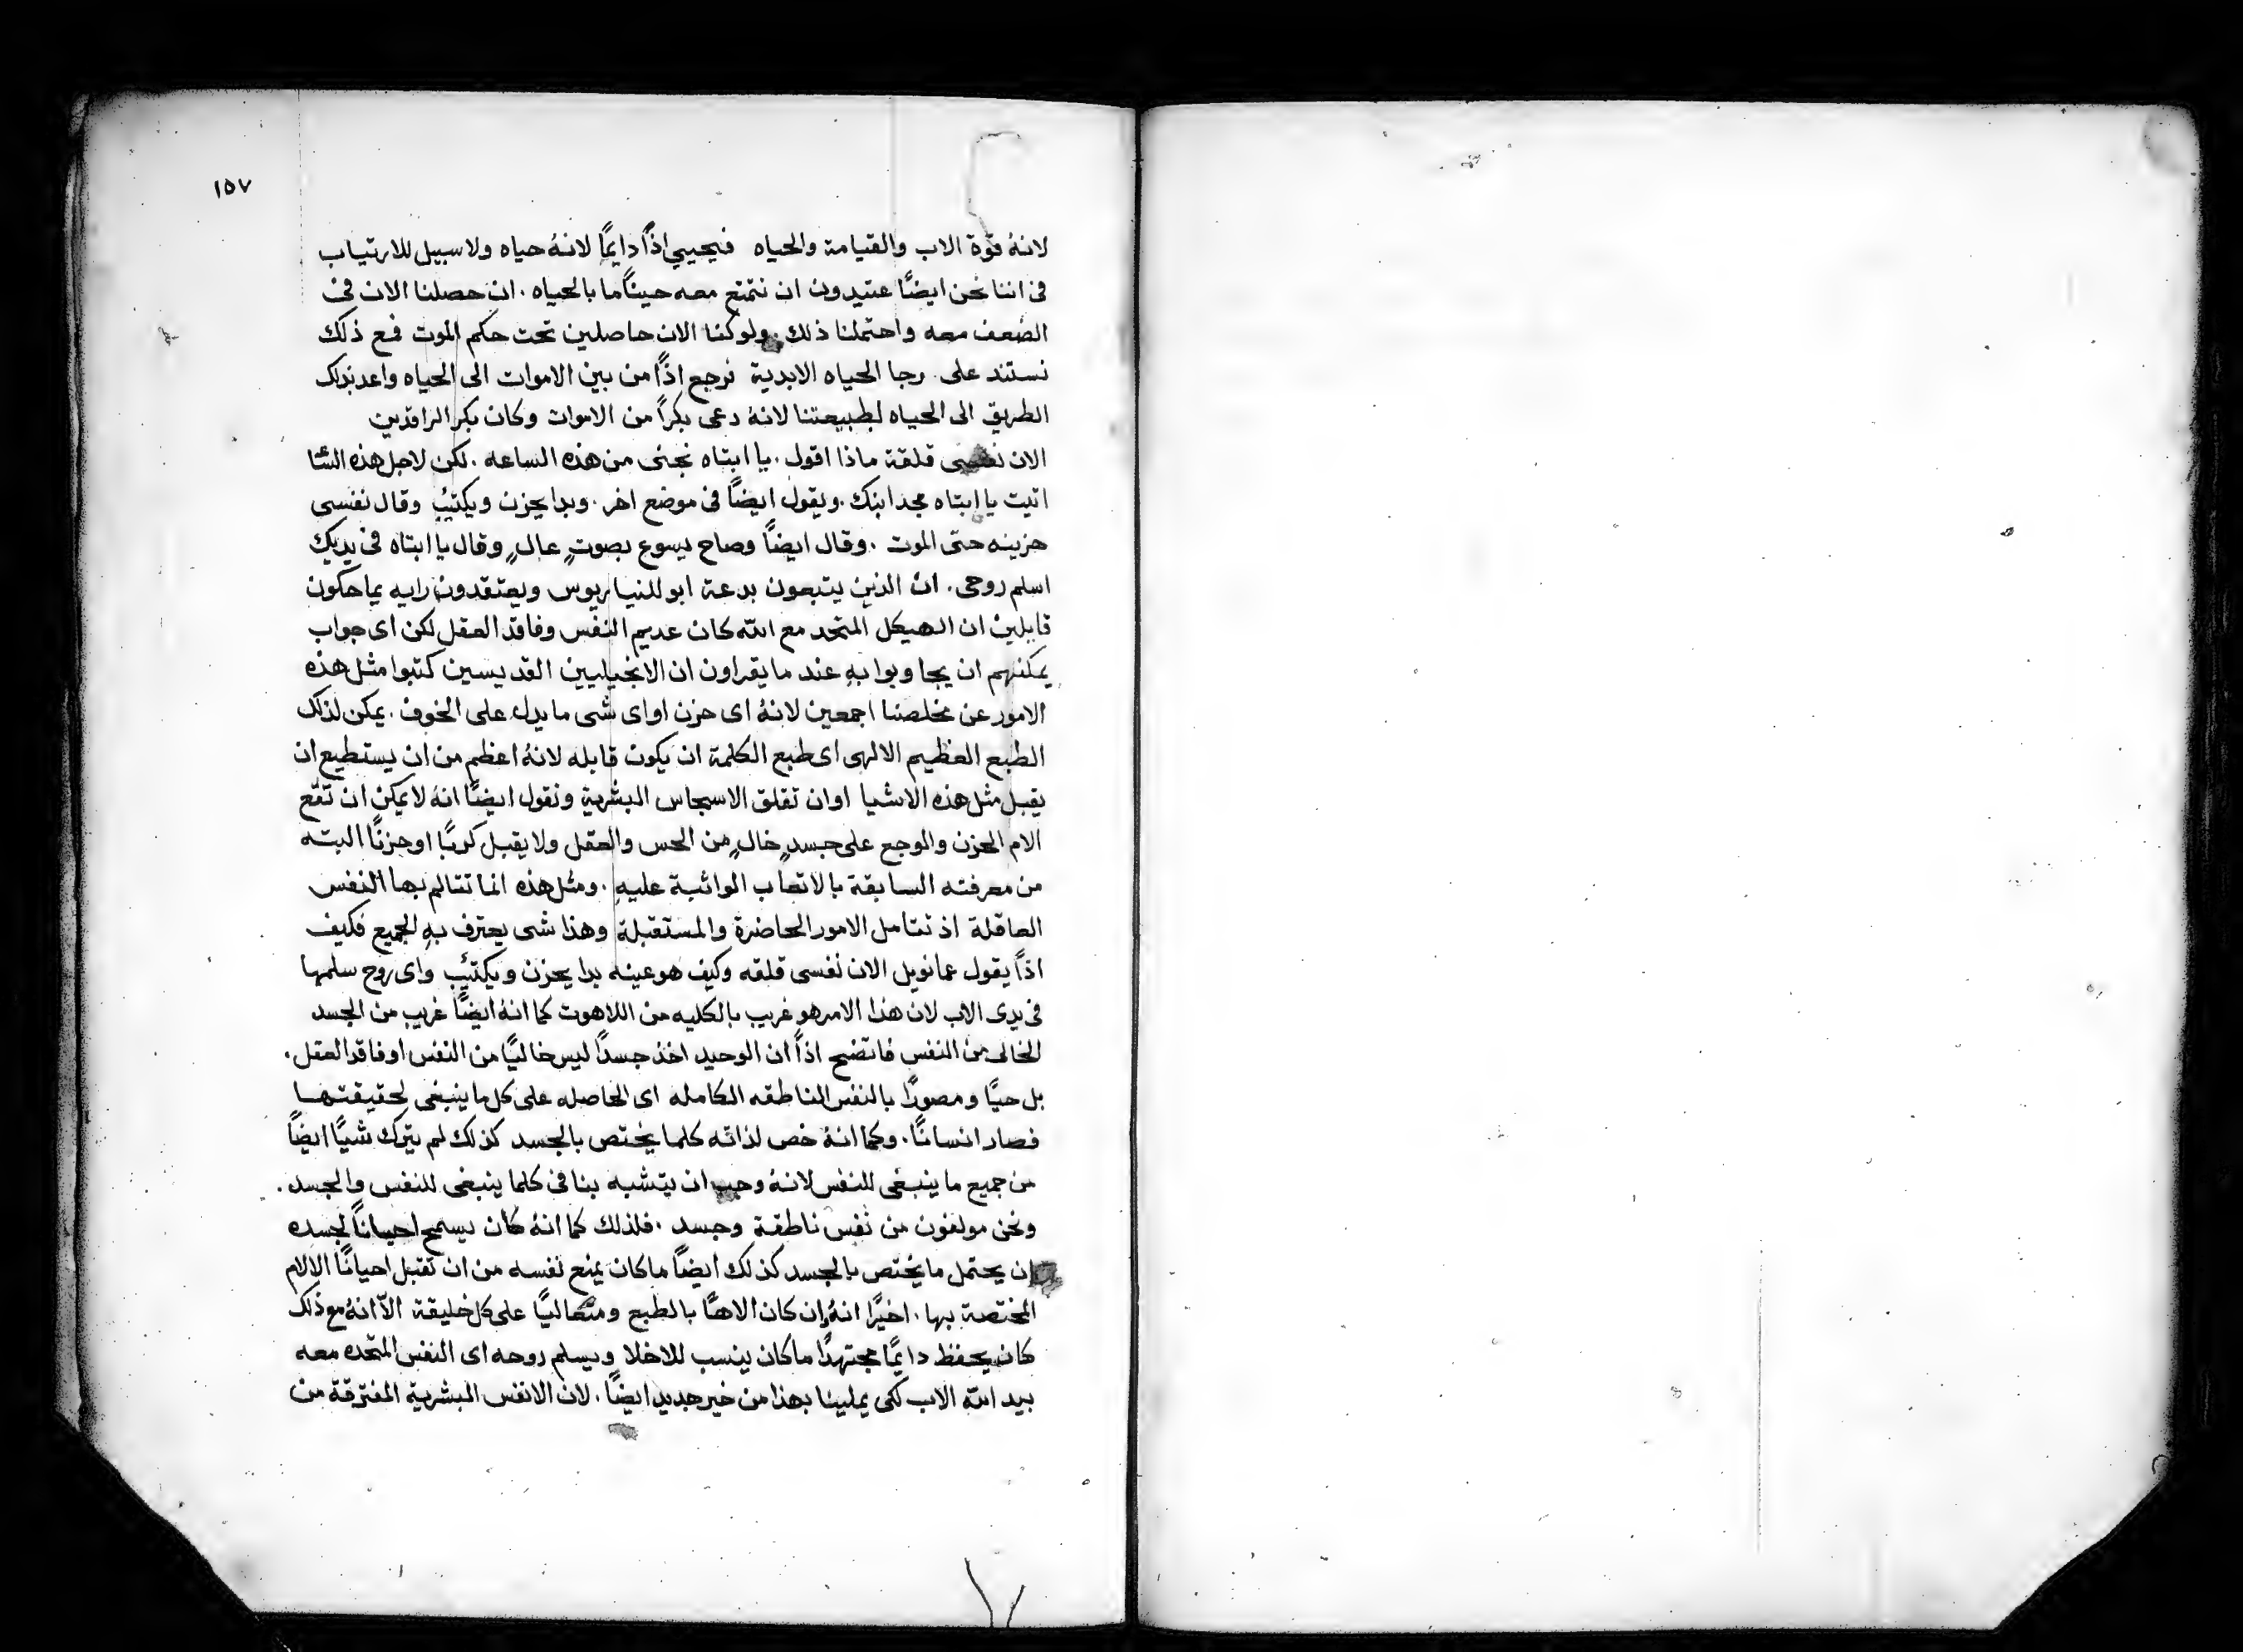 ١٥٧
لانهُ قوة الاب والقيامة والحياه فيحيي اذاً دايمًا لانهُ حياه ولا سبيل للارتياب
فى اننا نحن ايضًا عتيدون ان نتمتع معه حينًا ما بالحياه . ان حصلنا الان فى
الضعف معه واحتملنا ذلك . ولو كنا الان حاصلين تحت حكم الموت فمع ذلك
نستند على رجا الحياه الابدية نرجع اذاً من بين الاموات الى الحياه واعد بذلك
الطريق الى الحياه لطبيعتنا لانهُ دعى بكراً من الاموات وكان بكر الراقدين
الان نفسى قلقة ماذا اقول . يا ابتاه نجنى من هذه الساعه . لكن لاجل هذه
اتيت يا ابتاه مجد ابنك . ويقول ايضًا فى موضع اخر . وبدا يحزن ويكتئب وقال نفسى
حزينه حتى الموت . وقال ايضاً وصاح يسوع بصوتٍ عالٍ وقال يا ابتاه فى يديك
اسلم روحى . ان الذين يتبعون بدعة ابوللنياريوس ويعتقدون رايه يماحكون
قايلين ان الهيكل المتحد مع الله كان عديم النفس وفاقد العقل لكن اى جواب
يمكنهم ان يجاوبوا بهِ عند ما يقراون ان الانجيليين القديسين كتبوا مثل هذه
الامور عن مخلصنا اجمعين لانهُ اى حزن او اى شى ما يدل على الخوف . يمكن لذلك
الطبع العظيم الالهى اى طبع الكلمة ان يكون قابله لانهُ اعظم من ان يستطيع ان
يقبل مثل هذه الاشيا او ان تقلق الاسجاس البشرية ونقول ايضًا انهُ لا يمكن ان تقع
الام الحزن والوجع على جسدٍ خالٍ من الحس والعقل ولا يقبل كربًا او حزنًا البته
من معرفته السابقة بالاتعاب الواثبة عليهِ . ومثل هذه انما تتالم بها النفس
العاقلة اذ تتامل الامور الحاضرة والمستقبلة وهذا شى يعترف بهِ الجميع فكيف
اذاً يقول عمانويل الان نفسى قلقه وكيف هو عينه بدا يحزن ويكتئب واى روح سلمها
فى يدى الاب لان هذا الامر هو غريب بالكليه من اللاهوت كما انهُ ايضًا غريب من الجسد
الخالى من النفس فاتضح اذاً ان الوحيد اخذ جسداً ليس خاليًا من النفس او فاقد العقل .
بل حيًا ومصورًا بالنفس الناطقه الكامله اى الحاصله على كل ما ينبغى لحقيقتها
فصار انسانًا . وكما انهُ خص لذاته كلما يختص بالجسد كذلك لم يترك شيًا ايضاً
من جميع ما ينبغى للنفس لانهُ وجب ان يتشبه بنا فى كلما ينبغى للنفس والجسد .
ونحن مولفون من نفس ناطقة وجسد . فلذلك كما انهُ كان يسمح احيانًا لجسده
ان يحتمل ما يختص بالجسد كذلك ايضًا ما كان يمنع نفسه من ان تقبل احيانًا الالام
المختصة بها . اخيرًا انهُ وان كان الاهًا بالطبع ومتعاليًا على كل خليقة الّا انهُ مع ذلك
كان يحفظ دايمًا مجتهدًا ما كان ينسب للاخلا ويسلم روحه اى النفس المتحده معه
بيد الله الاب لكى يملينا بهذا من خير جديد ايضًا . لان الانفس البشرية المفترقة من